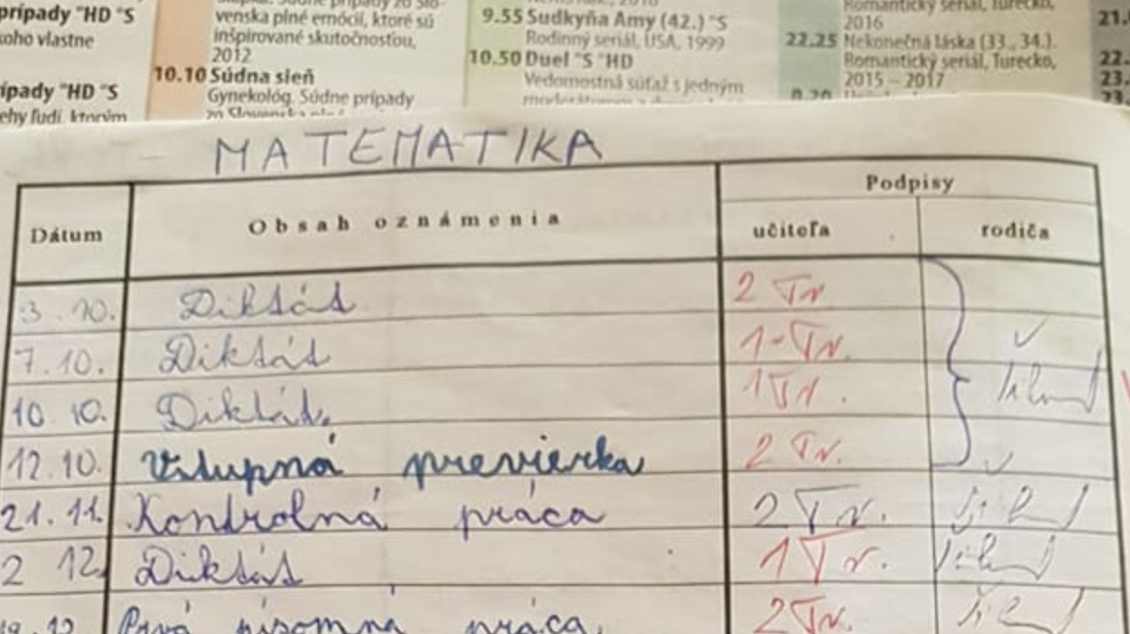 prípady "HD "S
koho vlastne
ípady "HD "S
venska plné emócií, ktoré sú
inšpirované skutočnosťou,
2012
10.10 Súdna sieň
Gynekológ. Súdne prípady
9.55 Sudkyňa Amy (42.) "S
Rodinný seriál, USA, 1999
10.50 Duel "S "HD
Vedomostná súťaž s jedným
Romantický seriál, Turecko,
2016
22.25 Nekonečná láska (33., 34.).
Romantický seriál, Turecko,
2015 – 2017
MATEMATIKA
Dátum Obsah oznámenia Podpisy
učiteľa rodiča
3.10. Diktát 2 Tr
7.10. Diktát 1- Tr.
10 10. Diktát. 1 Tr.
12.10. Vstupná previerka 2 Tr.
21.11. Kontrolná práca 2 Tr.
2 12. Diktát 1 Tr.
Prvá písomná práca. 2 Tr.